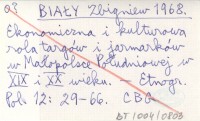 03 BIAŁY Zbigniew 1968.
Ekonomiczna i kulturowa
rola targów i jarmarków
w Małopolsce Południowej w
XIX i XX wieku. - Etnogr.
Pol. 12: 29-66. CBO
BT 1004/0803